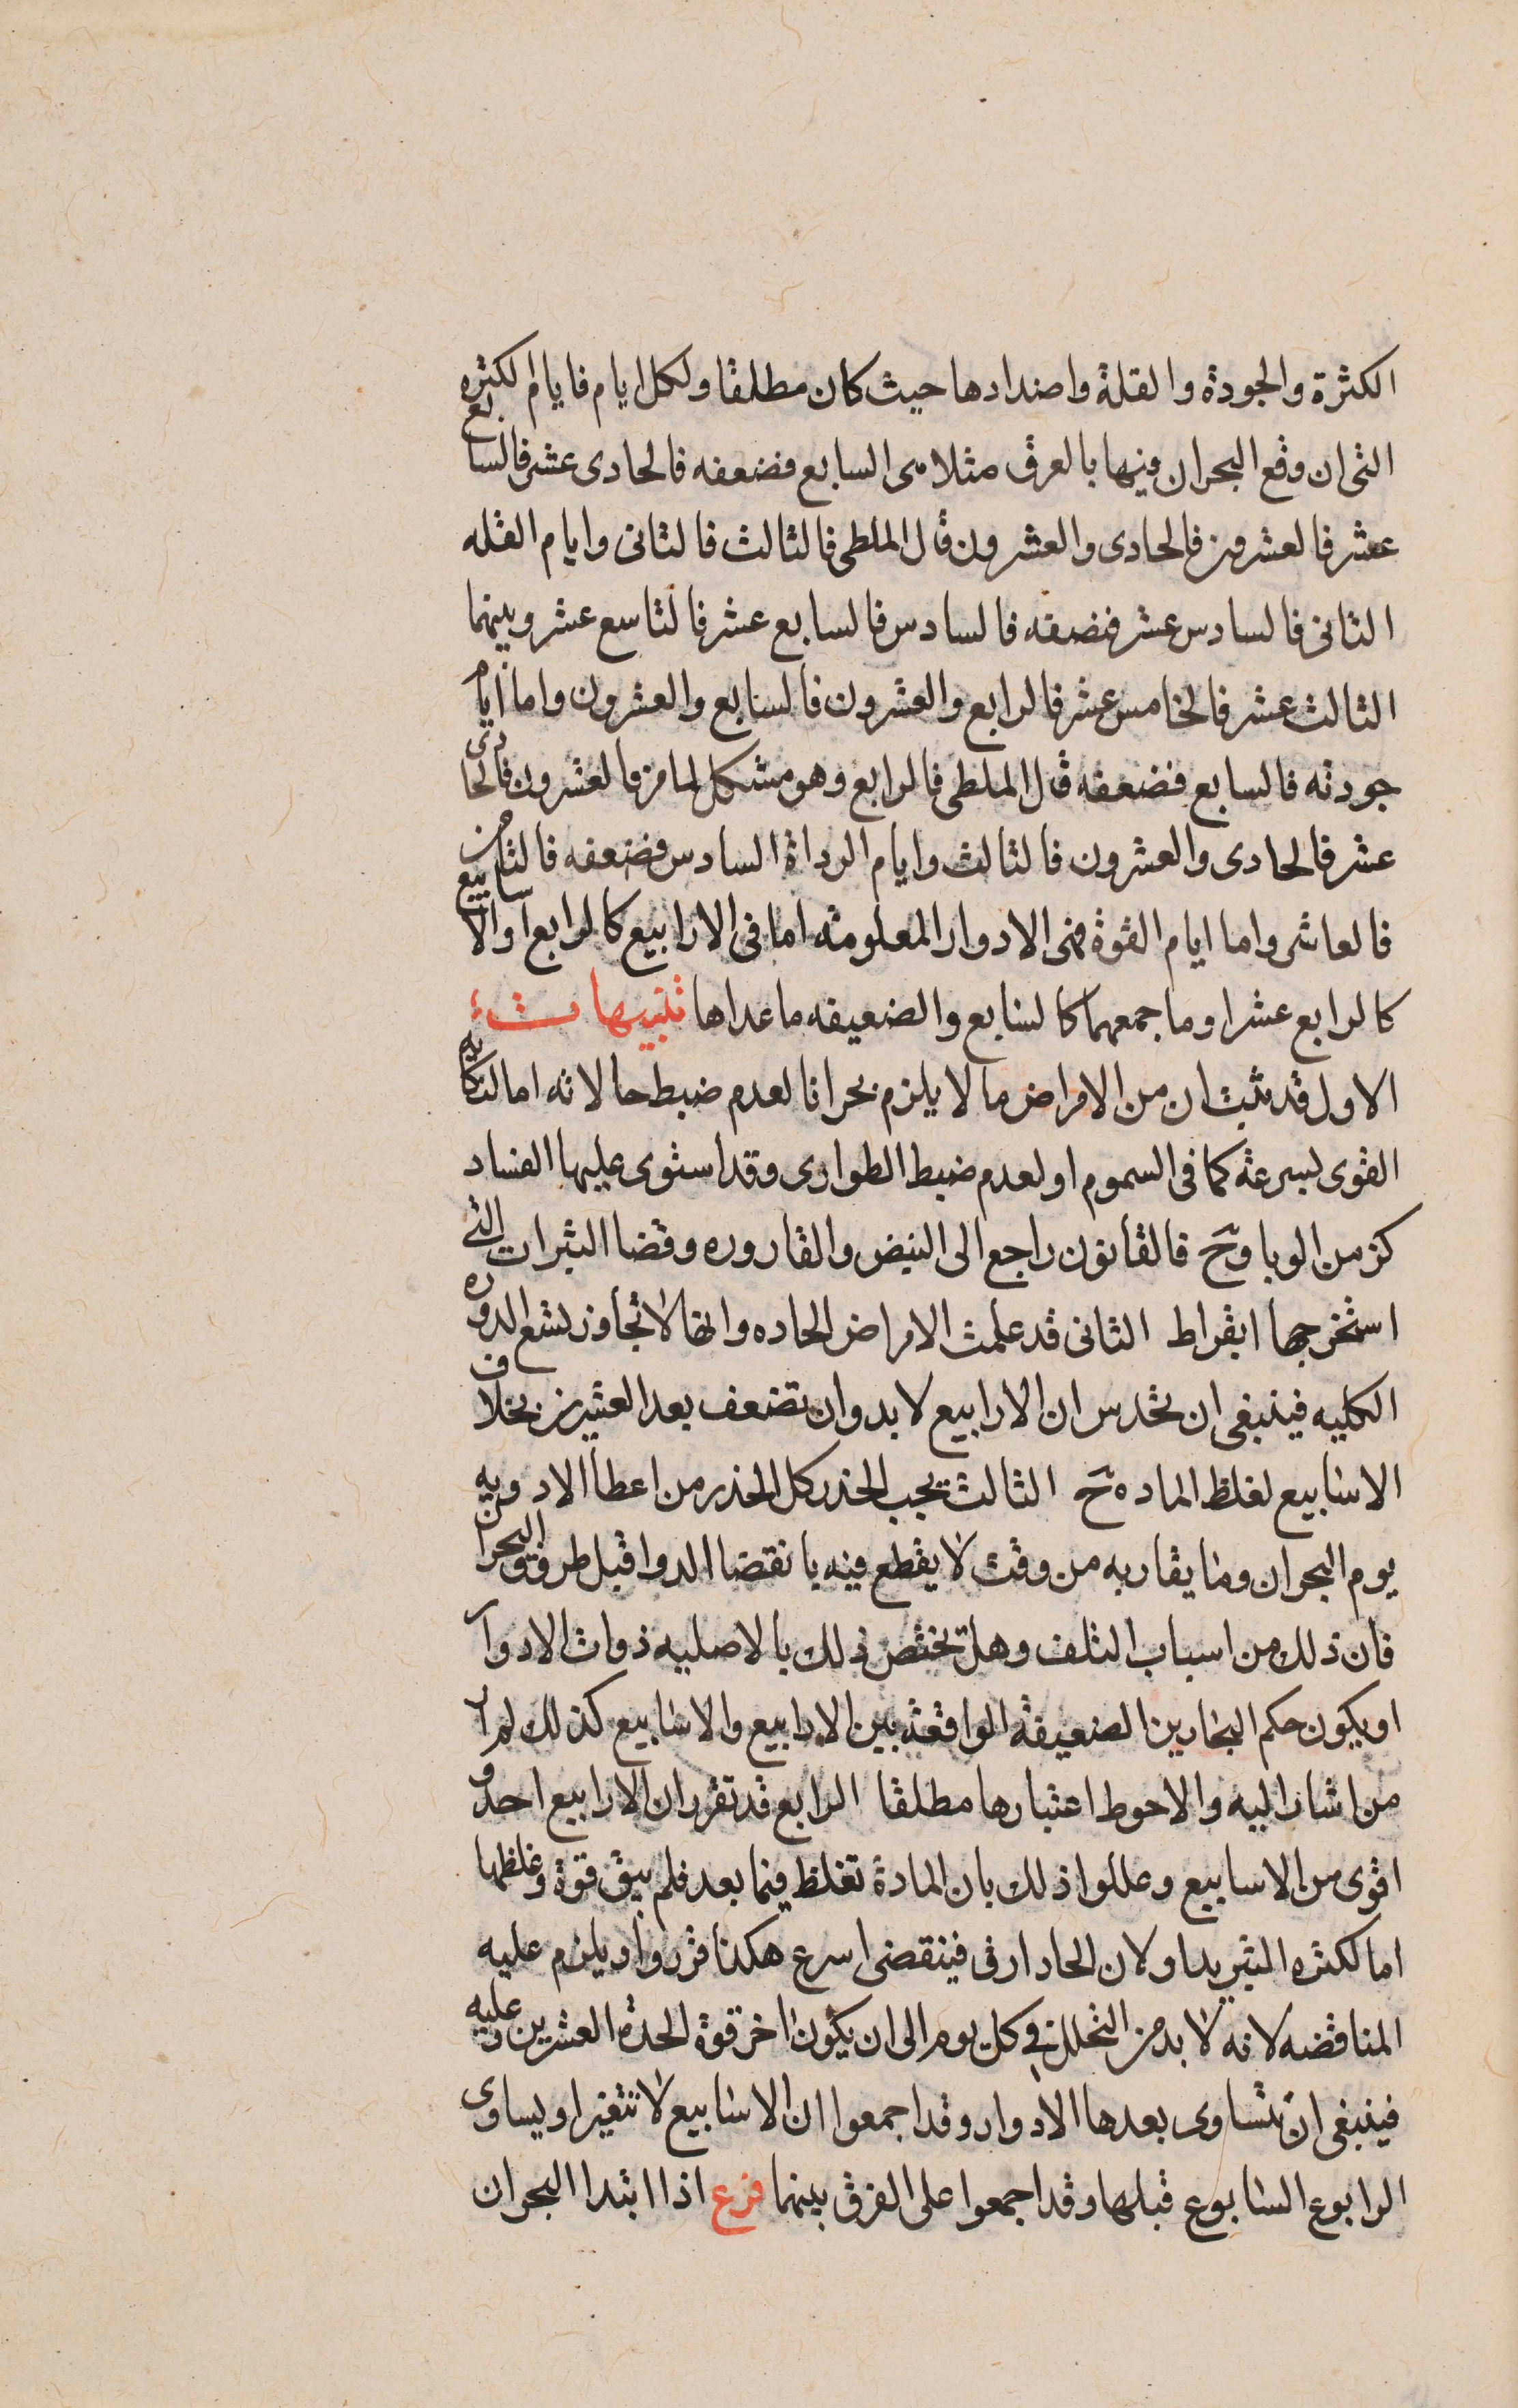 الكثرة والجودة والقلة واضدادها حيث كان مطلقا ولكل ايام فايام الكثره
التى ان وقع البحران فيها بالعرق مثلا فى السابع فضعفه فالحادى عشر فالسابع
عشر فالعشرون فالحادى والعشرون قال الملطى فالثالث فالثانى وايام القله
الثانى فالسادس عشر فضعفه فالسادس فالسابع عشر فالتاسع عشر وبينهما
الثالث عشر فالخامس عشر فالرابع والعشرون فالسابع والعشرون واما ايام
جودته فالسابع فضعفه قال الملطى فالرابع وهو مشكل لما مر فالعشرون فالحادى
عشر فالحادى والعشرون فالثالث وايام الرداة السادس فضعفه فالثامن
فالعاشر واما ايام القوة فهى الادوار المعلومة اما فى الارابيع كالرابع او الاسابيع
كالرابع عشر او ما جمعهما كالسابع والضعيفه ما عداها تنبيهات
الاول قد ثبت ان من الامراض ما لا يلزم بحرانا لعدم ضبط حالاته اما لنكايه
القوى لسرعة كما فى السموم او لعدم ضبط الطوارى وقد استوى عليها الفساد
كزمن الوبا وح فالقانون راجع الى النبض والقاروره وقضا البثرات التى
استخرجها ابقراط الثانى قد علمت الامراض الحاده وانها لا تجاوز تسع الدوره
الكليه فينبغى ان تحدس ان الارابيع لا بد وان تضعف بعد العشرين بخلاف
الاسابيع لغلظ الماده ح الثالث يجب الحذر كل الحذر من اعطا الادويه
يوم البحران وما يقاربه من وقت لا يقطع فيه بانقضا الدوا قبل طروق البحران
فان ذلك من اسباب التلف وهل تختص ذلك بالاصليه ذوات الادوار
او يكون حكم البحارين الضعيفة الواقعة بين الارابيع والاسابيع كذلك لم ار
من اشار اليه والاحوط اعتبارها مطلقا الرابع قد تقرر ان الارابيع احد و
اقوى من الاسابيع وعللوا ذلك بان المادة تغلظ فيما بعد فلم يبق قوة وغلظها
اما لكثره التبريد او لان الحاد ارق فينقضى اسرع هكذا قرروا ويلزم عليه
المناقضه لانه لا بد من التحلل فى كل يوم الى ان يكون اخر قوة الحدة العشرين وعليه
فينبغى ان تتساوى بعدها الادوار وقد اجمعوا ان الاسابيع لا تتغير او يساوى
الرابوع السابوع قبلها وقد اجمعوا على الفرق بينهما فرع اذا ابتدا البحران